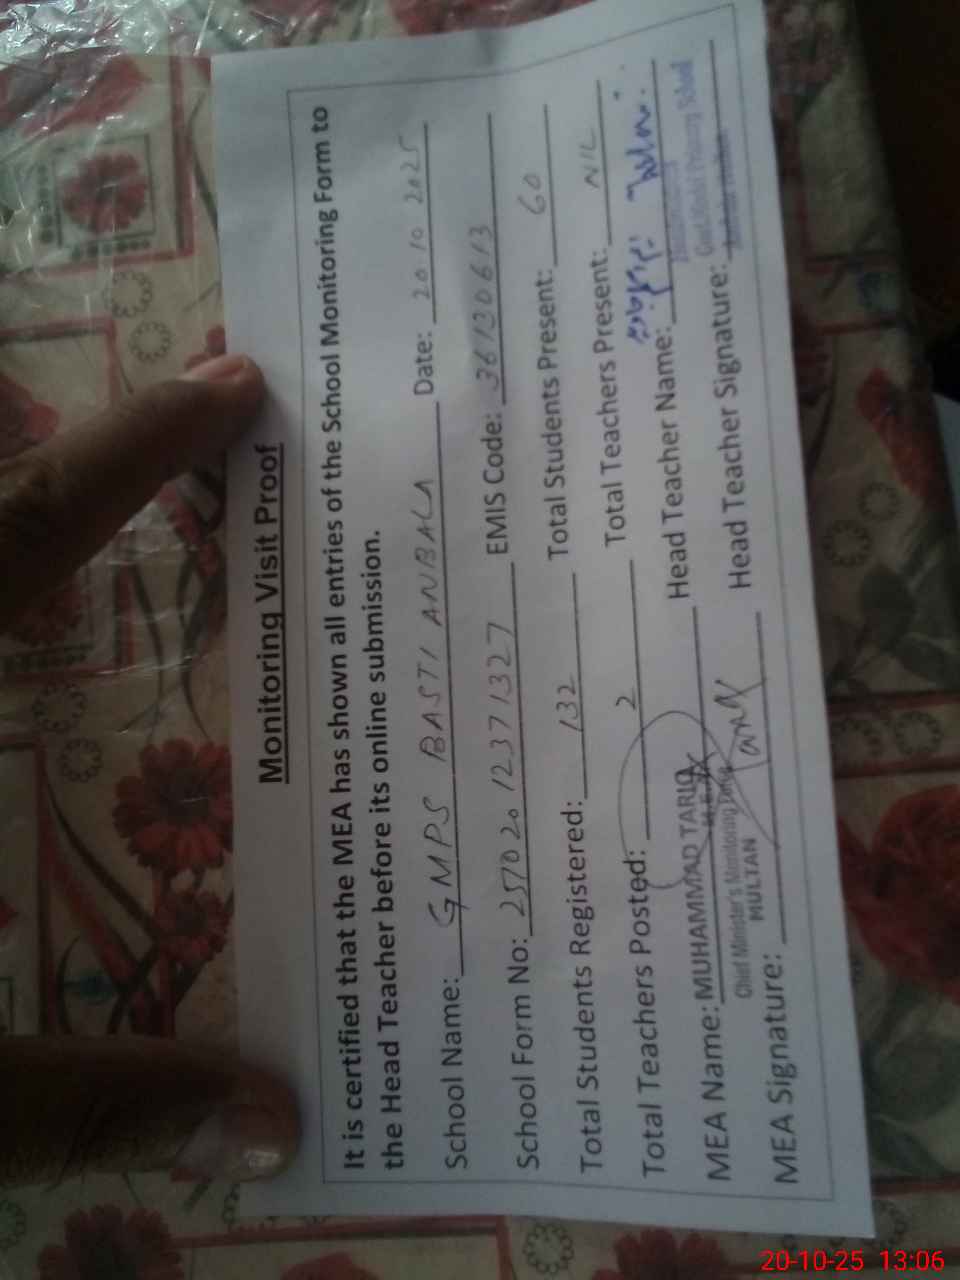 Monitoring Visit Proof
It is certified that the MEA has shown all entries of the School Monitoring Form to
the Head Teacher before its online submission.
School Name: GMPS BASTI ANBALA Date: 20 10 2025
School Form No: 257020 12371327 EMIS Code: 36130613
Total Students Registered: 132 Total Students Present: 60
Total Teachers Posted: 2 Total Teachers Present: NIL
MEA Name: MUHAMMAD TARIQ Head Teacher Name:
M.E.A
Chief Minister's Monitoring Force
MULTAN
MEA Signature: Tariq Head Teacher Signature:
Primary School
20-10-25 13:06